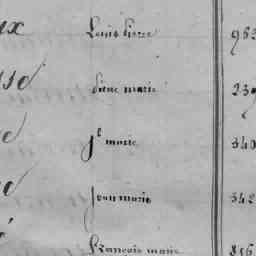 ux Louis pierre 963
se pierre marie 239
e jh marie 340
e jean marie 342
é François marie 816